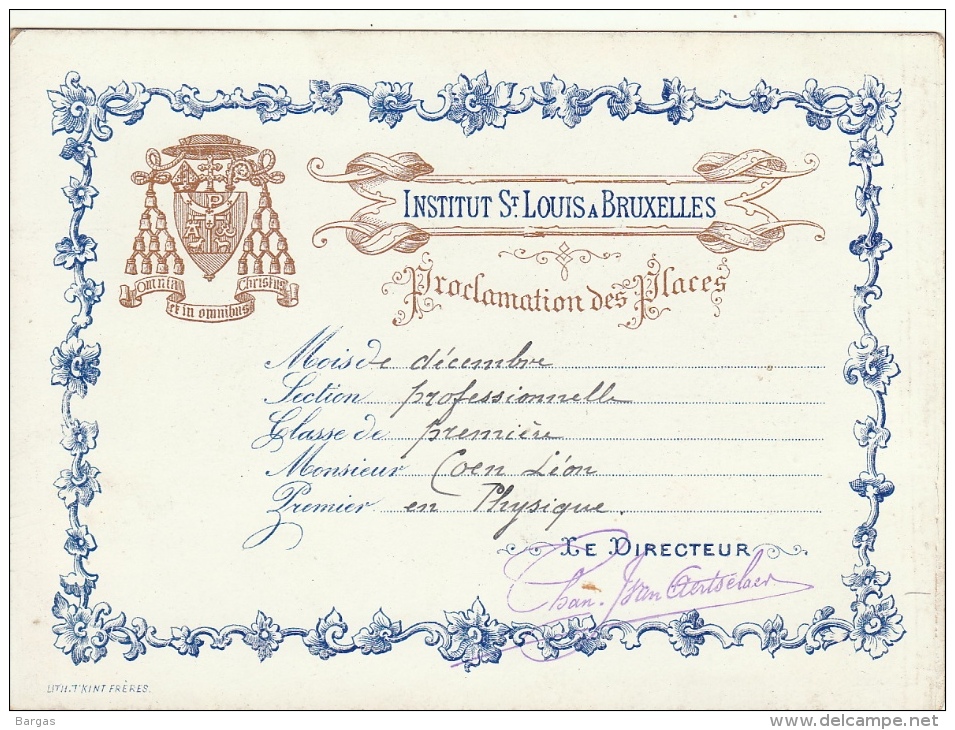 Omnia Christus
et in omnibus
P
INSTITUT ST. LOUIS A BRUXELLES
Proclamation des Places
Mois de décembre
Section professionnelle
Classe de première
Monsieur Coen Léon
Premier en Physique.
LE DIRECTEUR
Chan. J. Van Aertselaer
LITH. T'KINT FRÈRES.
Bargas
delcampe.net